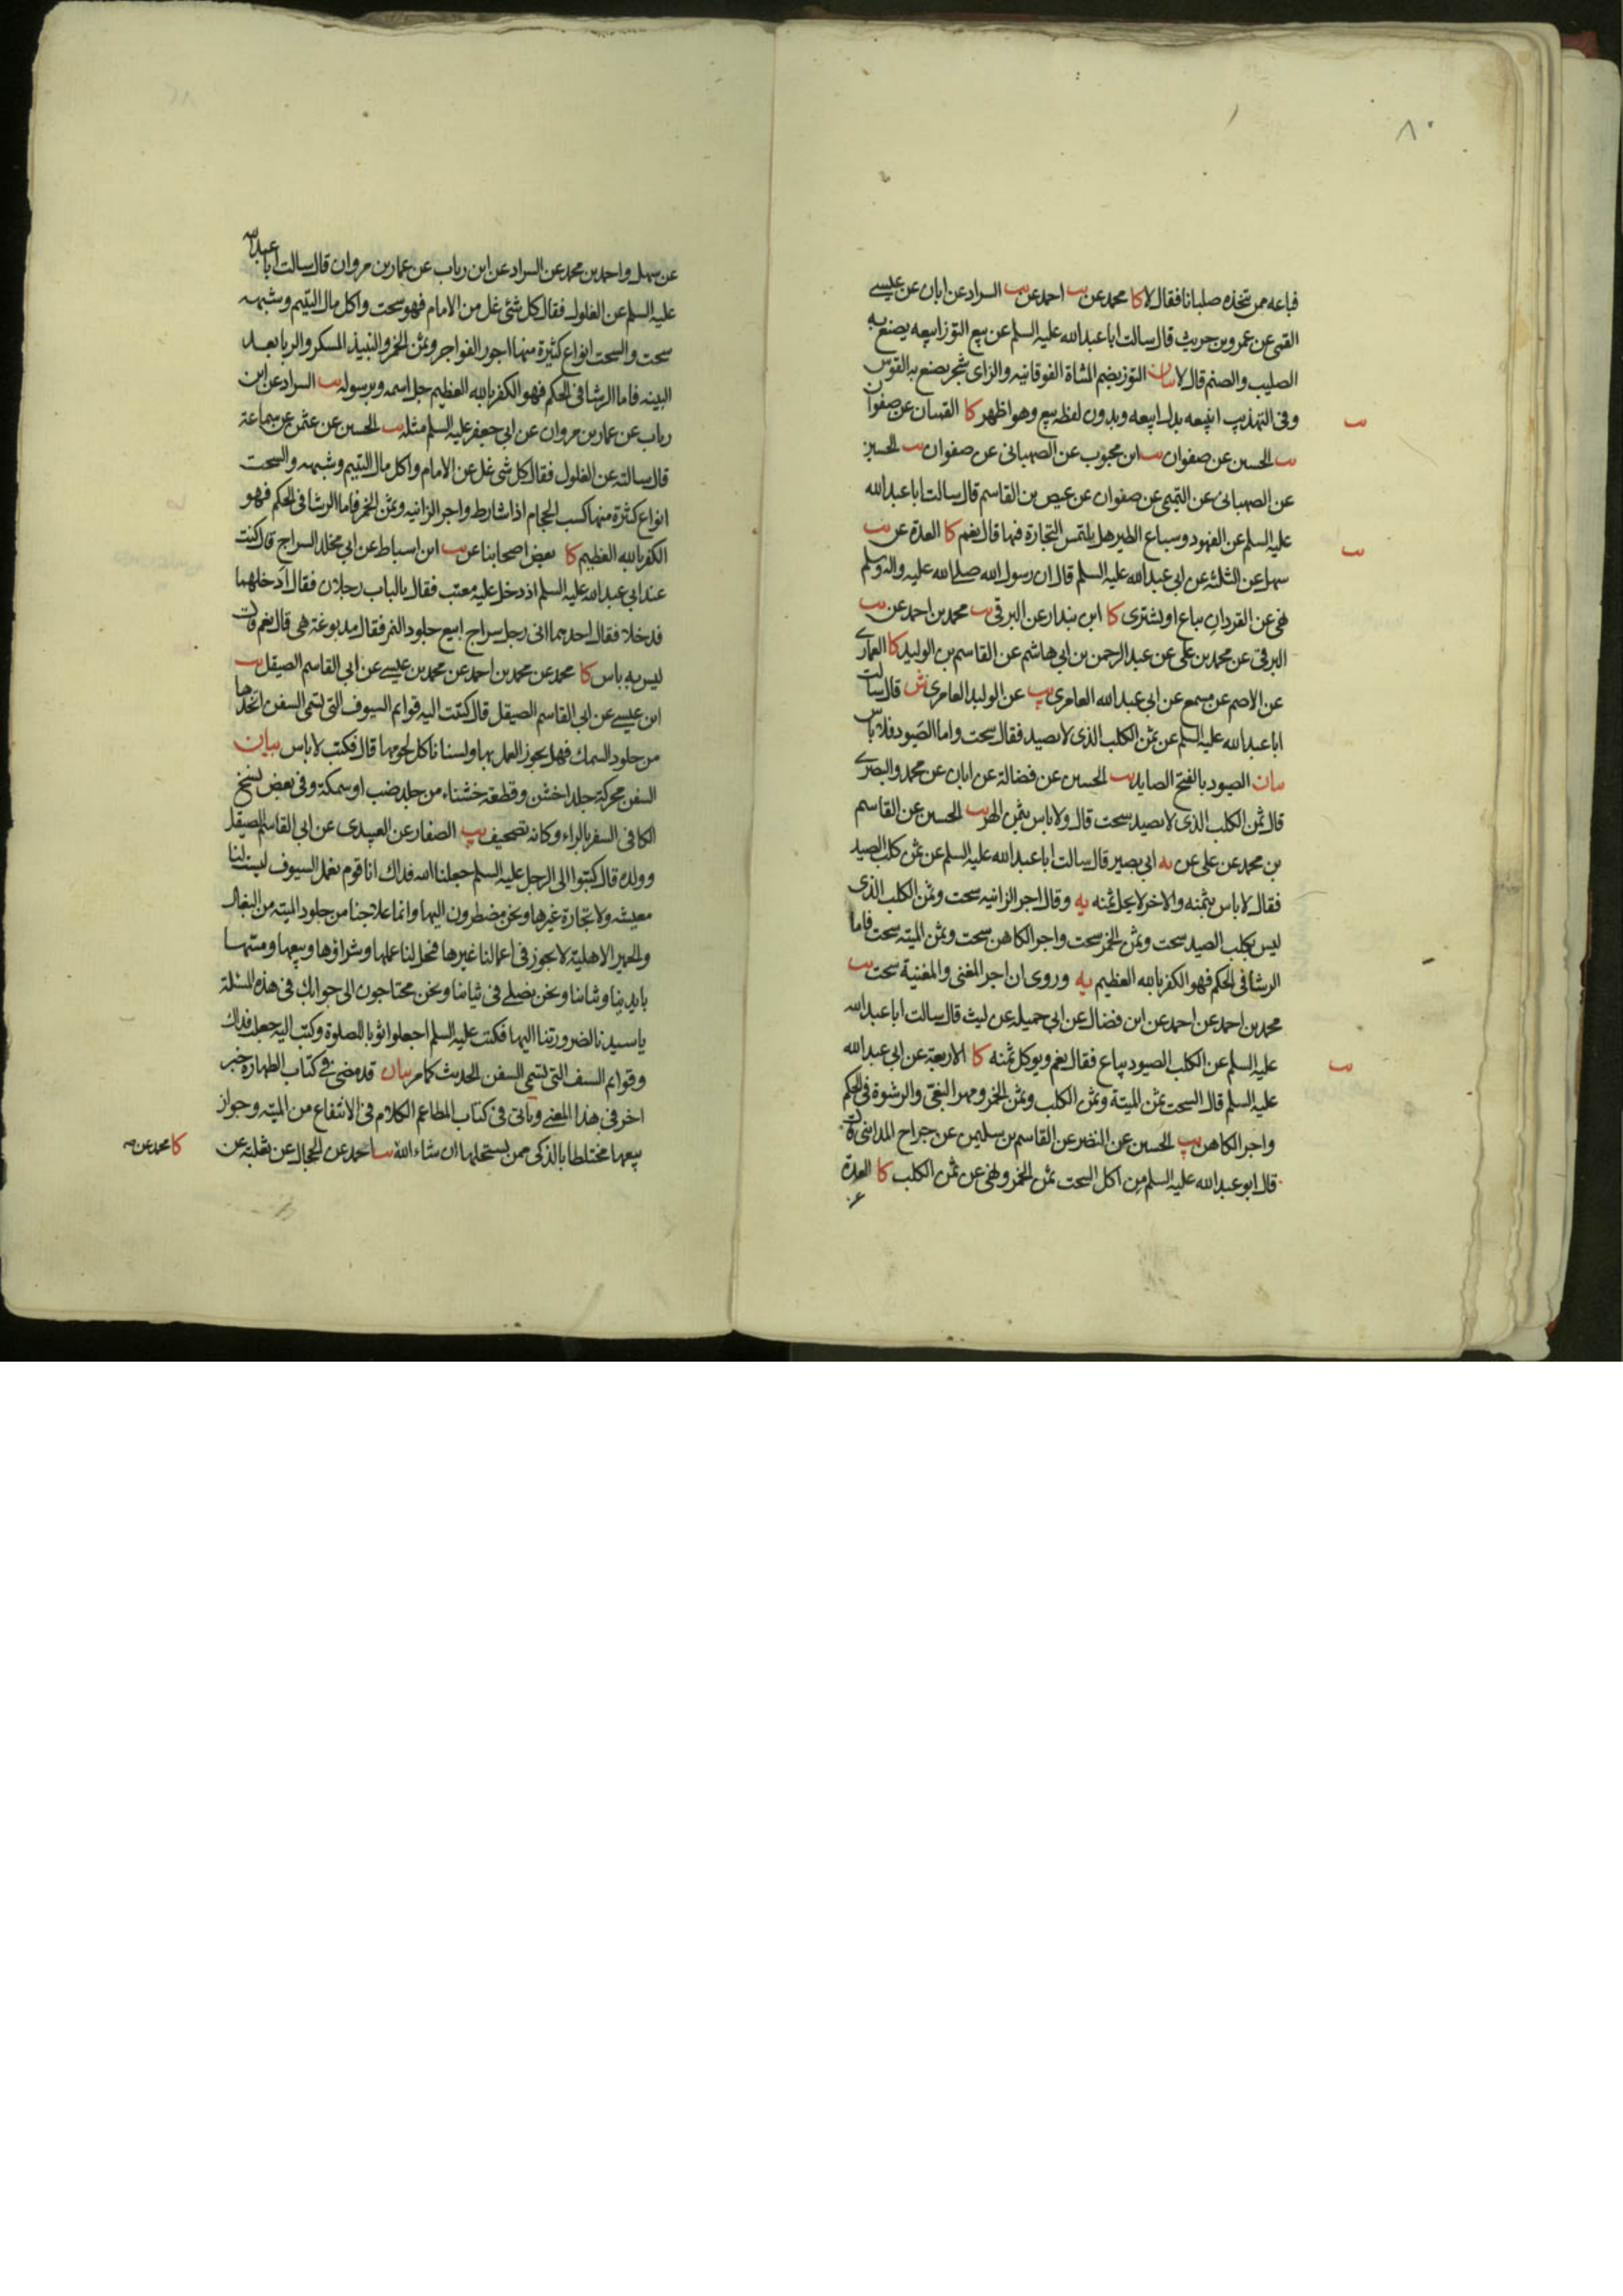 ٨٠
فباعه ممن يتخذه صلبانا فقال لا كا محمد عن يب احمد عن يب السراد عن ابان عن عيسى
القمى عن عمرو بن حريث قال سالت ابا عبد الله عليه السلم عن بيع التوز ابيعه يصنع به
الصليب والصنم قال لا بيان التوز بضم المثناة الفوقانيه والزاى شجر يصنع به القوس
وفى التهذيب ابيعه بدل ابيعه وبدون لفظه بيع وهو اظهر كا القميان عن صفوان
يب الحسين عن صفوان يب ابن محبوب عن الصهبانى عن صفوان يب الحسين
عن الصهبانى عن التميمى عن صفوان عن عيص بن القاسم قال سالت ابا عبد الله
عليه السلم عن الفهود وسباع الطير هل يلتمس التجارة فيها قال نعم كا العدة عن يب
سهل عن الثلثه عن ابى عبد الله عليه السلم قال ان رسول الله صلى الله عليه واله وسلم
نهى عن القردان يباع او يشترى كا ابن بندار عن البرقى يب محمد بن احمد عن يب
البرقى عن محمد بن على عن عبد الرحمن بن ابى هاشم عن القاسم بن الوليد كا العمارى
عن الاصم عن مسمع عن ابى عبد الله العامرى يب عن الوليد العامرى ش قال سالت
ابا عبد الله عليه السلم عن ثمن الكلب الذى لا يصيد فقال سحت واما الصيود فلا باس
بيان الصيود بالفتح الصايد يب الحسين عن فضالة عن ابان عن محمد والبصرى
قال ثمن الكلب الذى لا يصيد سحت قال ولا باس بثمن الهر يب الحسين عن القاسم
بن محمد عن على عن به ابى بصير قال سالت ابا عبد الله عليه السلم عن ثمن كلب الصيد
فقال لا باس بثمنه والاخر لا يحل ثمنه يه وقال اجر الزانيه سحت وثمن الكلب الذى
ليس بكلب الصيد سحت وثمن الخمر سحت واجر الكاهن سحت وثمن الميته سحت فاما
الرشا فى الحكم فهو الكفر بالله العظيم يه وروى ان اجر المغنى والمغنية سحت يب
محمد بن احمد عن احمد عن ابن فضال عن ابى جميله عن ليث قال سالت ابا عبد الله
عليه السلم عن الكلب الصيود يباع فقال نعم ويوكل ثمنه كا الاربعة عن ابى عبد الله
عليه السلم قال السحت ثمن الميتة وثمن الكلب وثمن الخمر ومهر البغى والرشوة فى الحكم
واجر الكاهن يب الحسين عن النضر عن القاسم بن سليمن عن جراح المداينى قال
قال ابو عبد الله عليه السلم من اكل السحت ثمن الخمر ونهى عن ثمن الكلب كا العدة
عن
عن سهل واحمد بن محمد عن السراد عن ابن رياب عن عمار بن مروان قال سالت ابا عبد الله
عليه السلم عن الغلول فقال كل شئ غل من الامام فهو سحت واكل مال اليتيم وشبهه
سحت والسحت انواع كثيرة منها اجور الفواجر وثمن الخمر والنبيذ المسكر والربا بعد
البينه فاما الرشا فى الحكم فهو الكفر بالله العظيم جل اسمه وبرسوله يب السراد عن ابن
رياب عن عمار بن مروان عن ابى جعفر عليه السلم مثله يب الحسين عن عثمن عن سماعة
قال سالته عن الغلول فقال كل شى غل عن الامام واكل مال اليتيم وشبهه والسحت
انواع كثيرة منها كسب الحجام اذا شارط واجر الزانيه وثمن الخمر فاما الرشا فى الحكم فهو
الكفر بالله العظيم كا بعض اصحابنا عن يب ابن اسباط عن ابى مخلد السراج قال كنت
عند ابى عبد الله عليه السلم اذ دخل عليه معتب فقال بالباب رجلان فقال ادخلهما
فدخلا فقال احدهما انى رجل سراج ابيع جلود النمر فقال مدبوغة هى قال نعم قال
ليس به باس كا محمد عن محمد بن احمد عن محمد بن عيسى عن ابى القاسم الصيقل يب
ابن عيسى عن ابى القاسم الصيقل قال كتبت اليه قوايم السيوف التى تسمى السفن اتخذها
من جلود السمك فهل يجوز العمل بها ولسنا ناكل لحومها قال فكتب لا باس بيان
السفن محركة جلد اخشن وقطعه خشناء من جلد ضب او سمكة وفى بعض نسخ
الكافى السفر بالراء وكانه تصحيف يب الصفار عن العبيدى عن ابى القاسم الصيقل
وولده قال كتبوا الى الرجل عليه السلم جعلنا الله فداك انا قوم نعمل السيوف ليست لنا
معيشه ولا تجارة غيرها ونحن مضطرون اليها وانما علاجنا من جلود الميته من البغال
والحمير الاهلية لا يجوز فى اعمالنا غيرها فيحل لنا عملها وشراؤها وبيعها ومسها
بايدينا وثيابنا ونحن نصلى فى ثيابنا ونحن محتاجون الى جوابك فى هذه المسئلة
يا سيدنا لضرورتنا اليها فكتب عليه السلم اجعلوا ثوبا للصلوة وكتب اليه جعلت فداك
وقوايم السيف التى تسمى السفن الحديث كما مر بيان قد مضى فى كتاب الطهارة خبر
اخر فى هذا المعنى وياتى فى كتاب المطاعم الكلام فى الانتفاع من الميته وجواز
بيعها مختلطا بالذكى ممن يستحلها ان شاء الله احمد عن الحجال عن ثعلبة عن
كا محمد عن